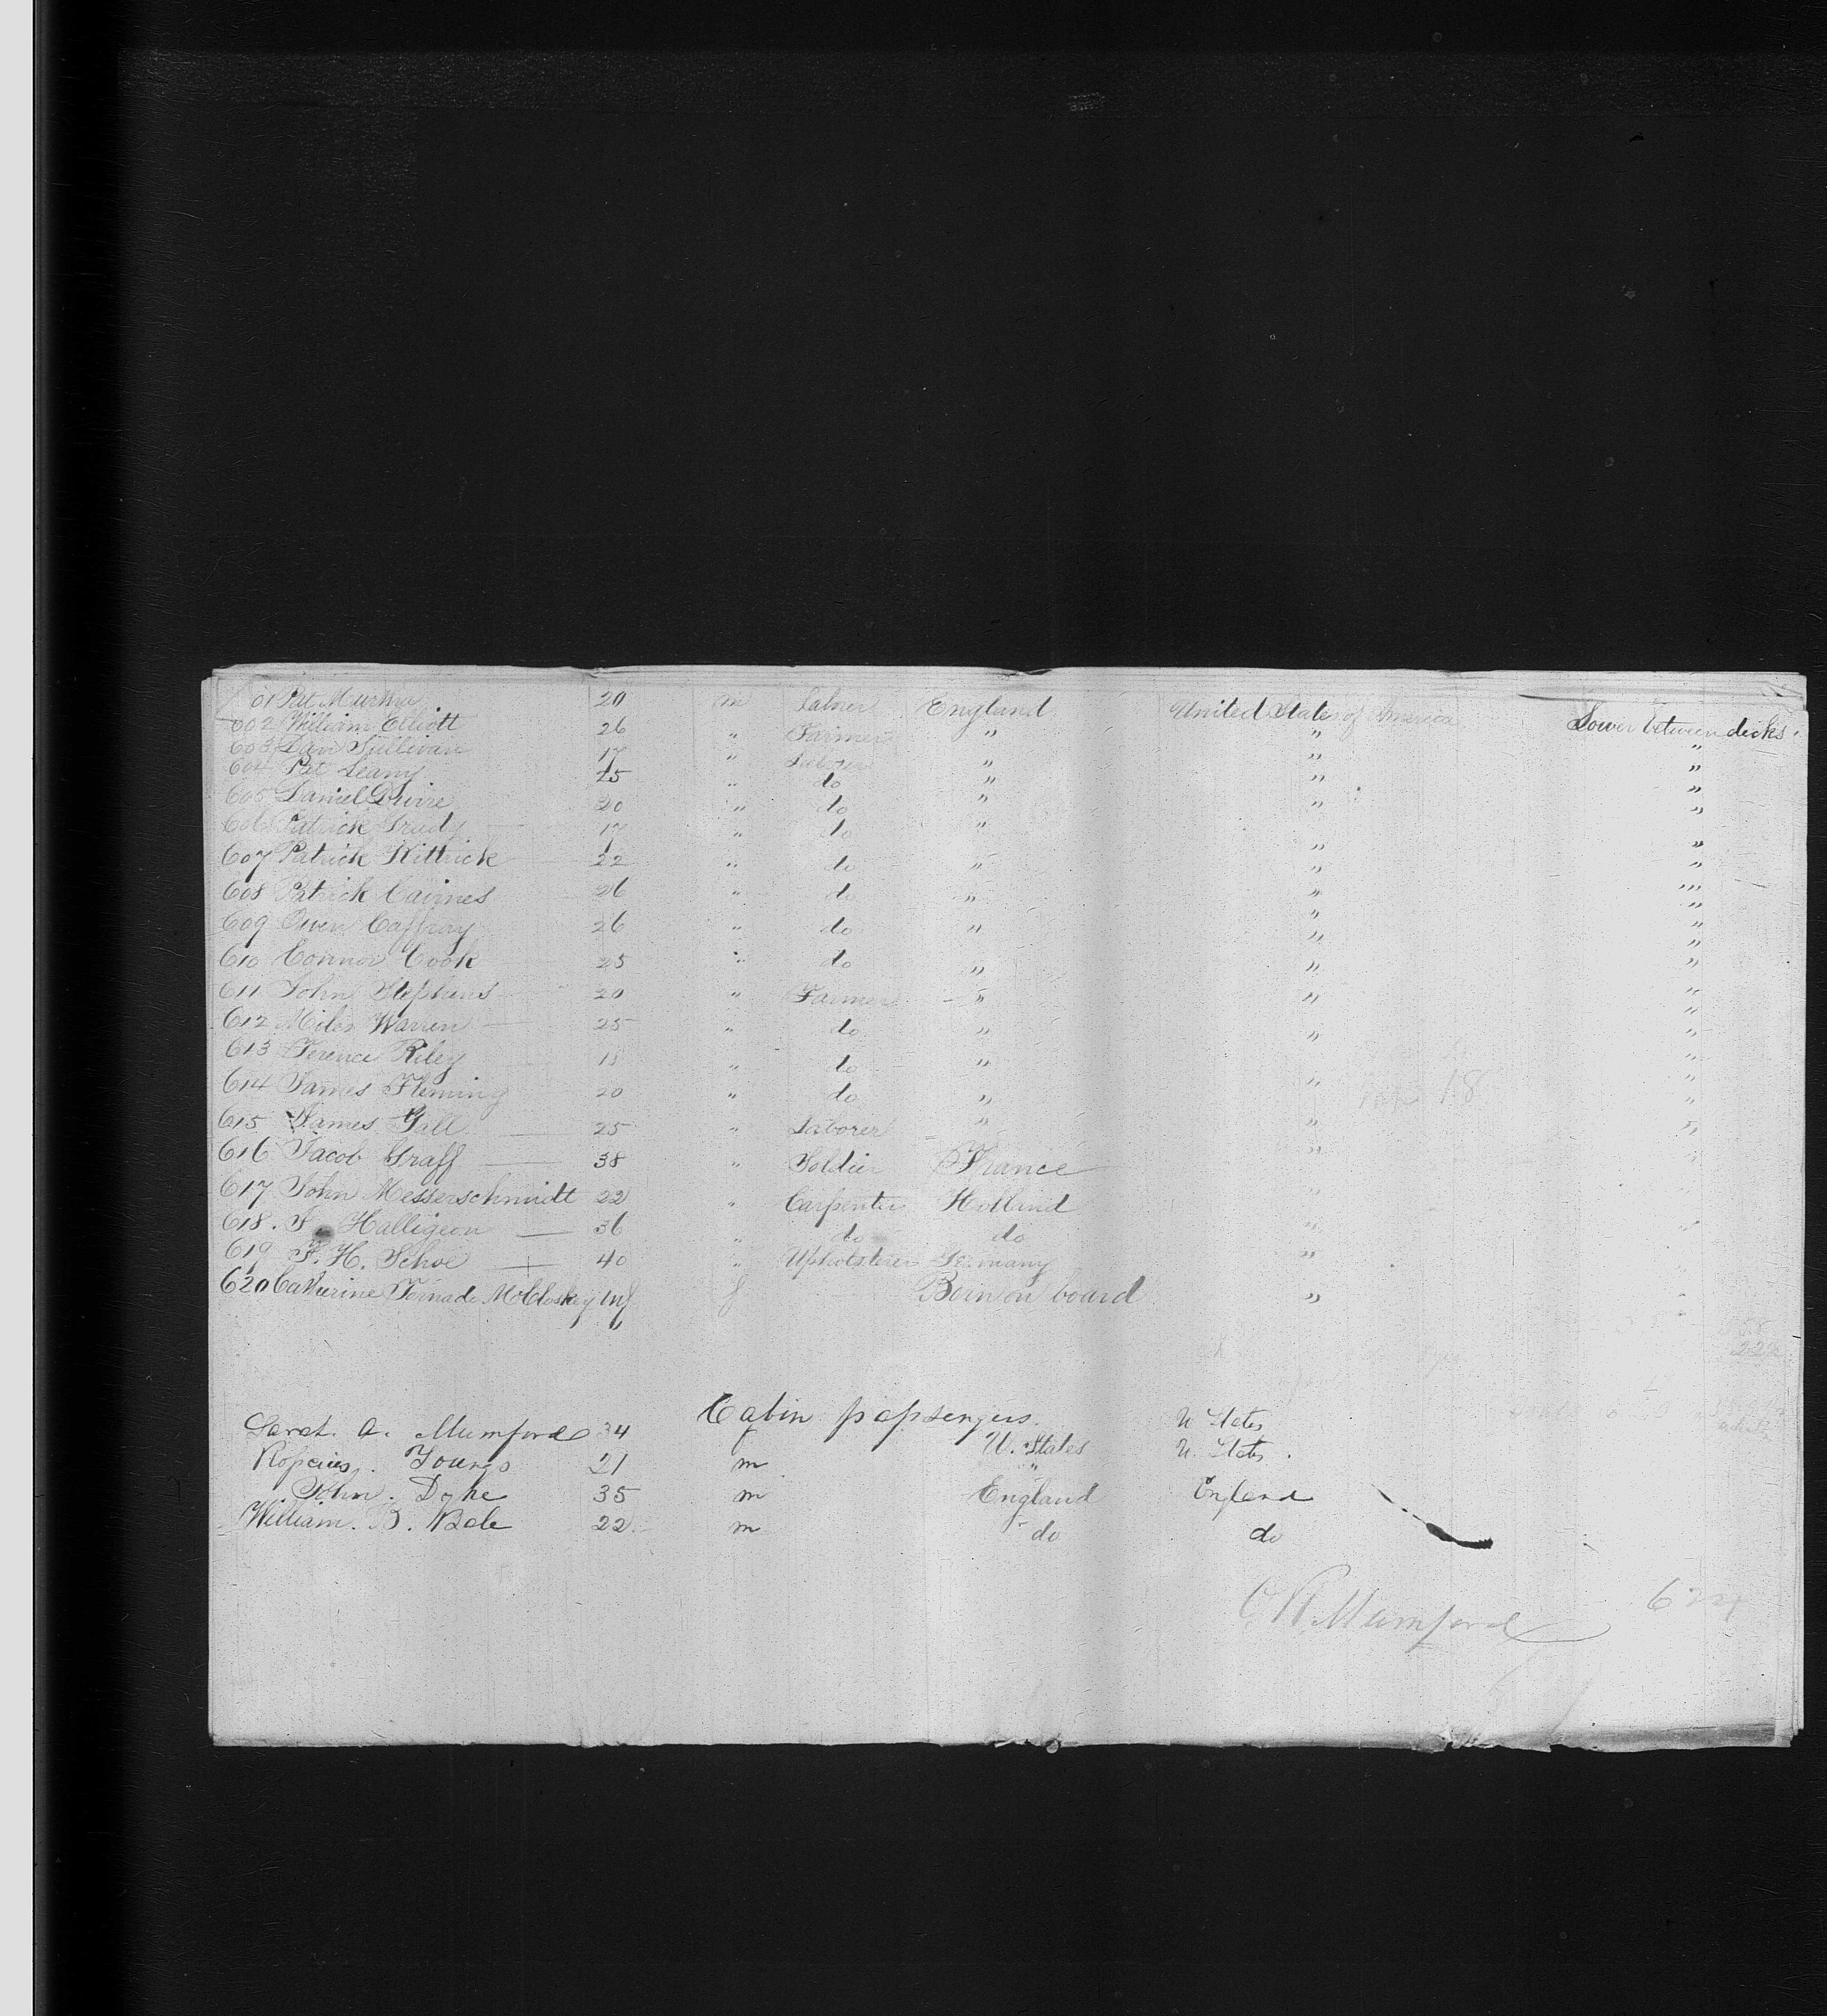 01 Pat Murthu 20 m Labrer England United States of America Lower between dicks.
602 William Elliott 26 " Farmer " " "
603 Dan Sullivan 17 " Laborer " " "
604 Pat Leany 25 " do " " "
605 Daniel Dwire 20 " do " " "
606 Patrick Grudy 17 " do " " "
607 Patrick Kittrick 22 " do " " "
608 Patrick Cairnes 26 " do " " "
609 Owen Caffray 26 " do " " "
610 Connor Cook 25 " do " " "
611 John Stephens 20 " Farmer " " "
612 Miles Warren 25 " do " " "
613 Terence Riley 18 " do " " "
614 James Fleming 20 " do " " "
615 James Gall 25 " Laborer " " "
616 Jacob Graff 38 " Soldier France " "
617 John Messerschmidt 22 " Carpenter Holland " "
618. Halligeon 36 " do do " "
619 F. H. Schoe 40 " Upholsterer Germany "
620 Catherine Tornado McCloskey Inf f Born on board "
Cabin passengers.
Sarah. A. Mumford 34 f U. States U States
Youngs 21 m " U. States.
John. Dyke 35 m England England
William. B. Bole 22 m do do
C. R. Mumford 624